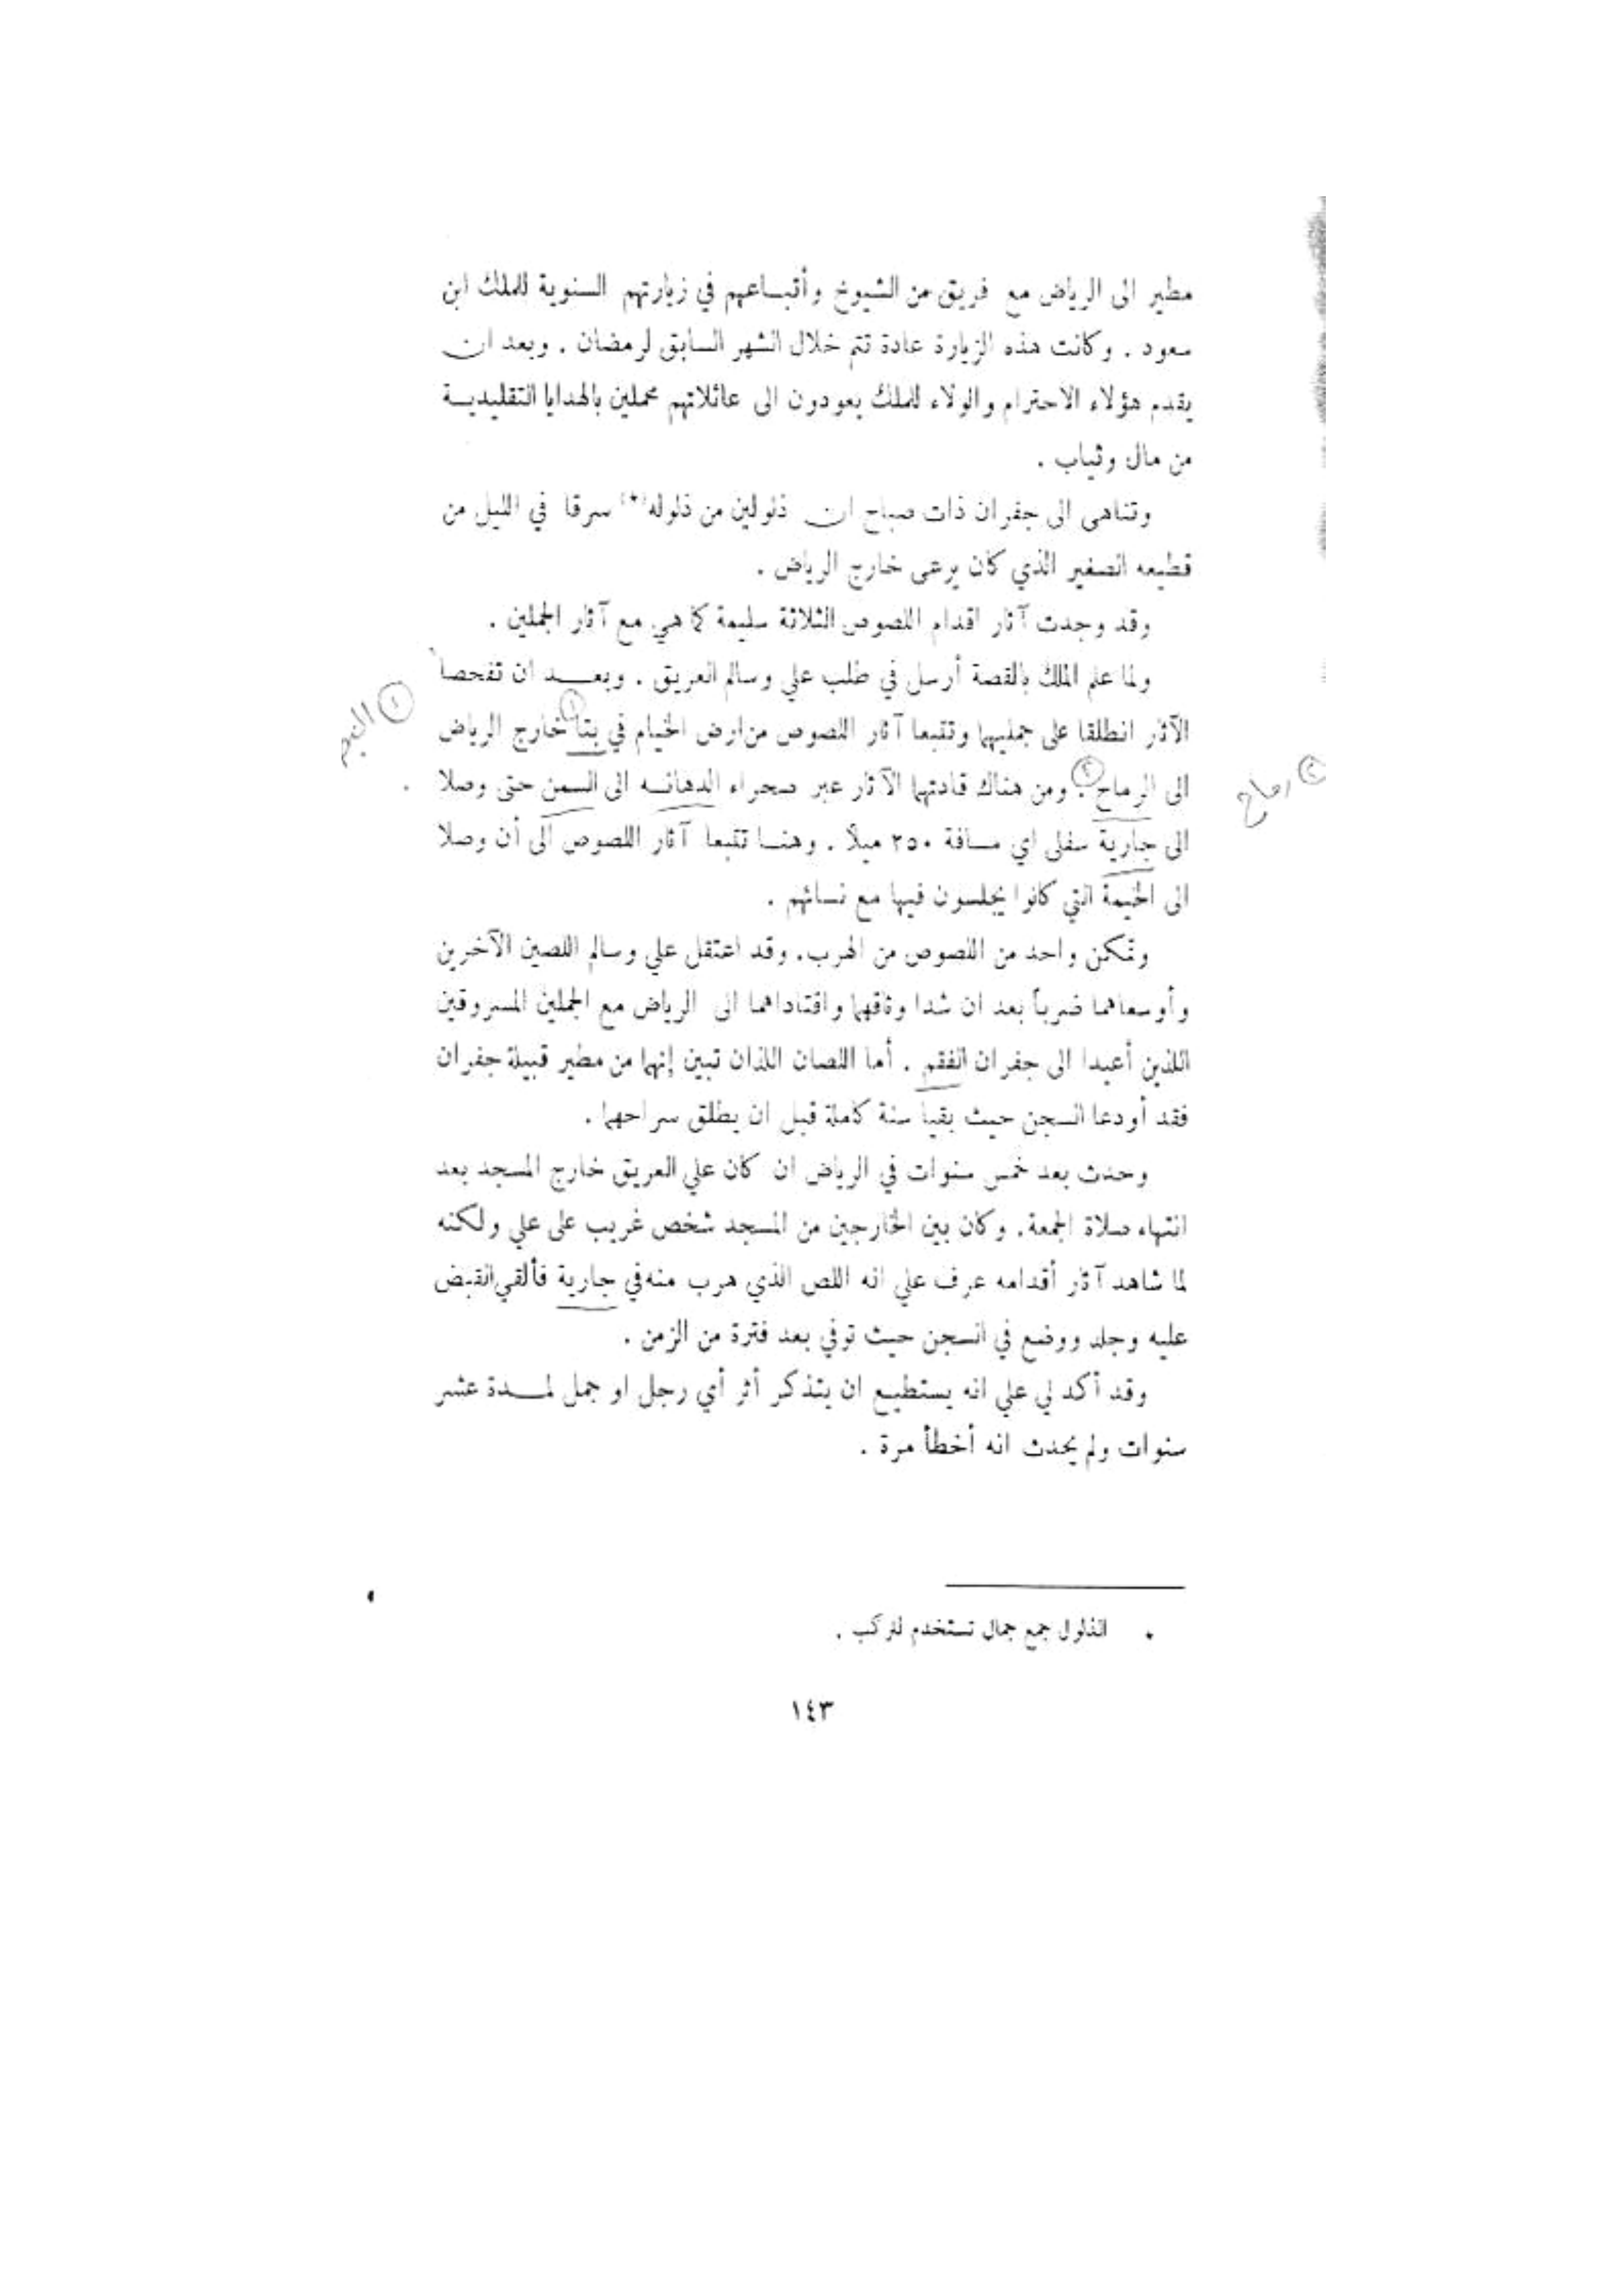 مطير الى الرياض مع فريق من الشيوخ وأتبـاعهم في زيارتهم السنوية للملك ابن
سعود . وكانت هذه الزيارة عادة تتم خلال الشهر السابق لرمضان . وبعد ان
يقدم هؤلاء الاحترام والولاء للملك يعودون الى عائلاتهم محملين بالهدايا التقليديـة
من مال وثياب .
وتناهى الى جفران ذات صباح ان ذلولين من ذلوله(*) سرقا في الليل من
قطيعه الصغير الذي كان يرعى خارج الرياض .
وقد وجدت آثار اقدام اللصوص الثلاثة سليمة كما هي مع آثار الجملين .
ولما علم الملك بالقصة أرسل في طلب علي وسالم العريق . وبعـد ان تفحصا
الآثار انطلقا على جمليهما وتتبعا آثار اللصوص من ارض الخيام في بتا (١) خارج الرياض
الى الرماح (٢) . ومن هناك قادتهما الآثار عبر صحراء الدهانـه الى السمن حتى وصلا
(٢) رماح
الى جارية سفلى اي مسافة ٢٥٠ ميلاً . وهنـا تتبعا آثار اللصوص الى أن وصلا
الى الخيمة التي كانوا يجلسون فيها مع نسائهم .
وتمكن واحد من اللصوص من الهرب . وقد اعتقل علي وسالم اللصين الآخرين
وأوسعاهما ضرباً بعد ان شدا وثاقهما واقتاداهما الى الرياض مع الجملين المسروقين
اللذين أعيدا الى جفران الفقم . أما اللصان اللذان تبين إنهما من مطير قبيلة جفران
فقد أودعا السجن حيث بقيا سنة كاملة قبل ان يطلق سراحهما .
وحدث بعد خمس سنوات في الرياض ان كان علي العريق خارج المسجد بعد
انتهاء صلاة الجمعة . وكان بين الخارجين من المسجد شخص غريب على علي ولكنه
لما شاهد آثار أقدامه عرف علي انه اللص الذي هرب منه في جارية فألقي القبض
عليه وجلد ووضع في السجن حيث توفي بعد فترة من الزمن .
وقد أكد لي علي انه يستطيـع ان يتذكر أثر أي رجل او جمل لمـدة عشر
سنوات ولم يحدث انه أخطأ مرة .
* الذلول جمع جمال تستخدم للركب .
١٤٣